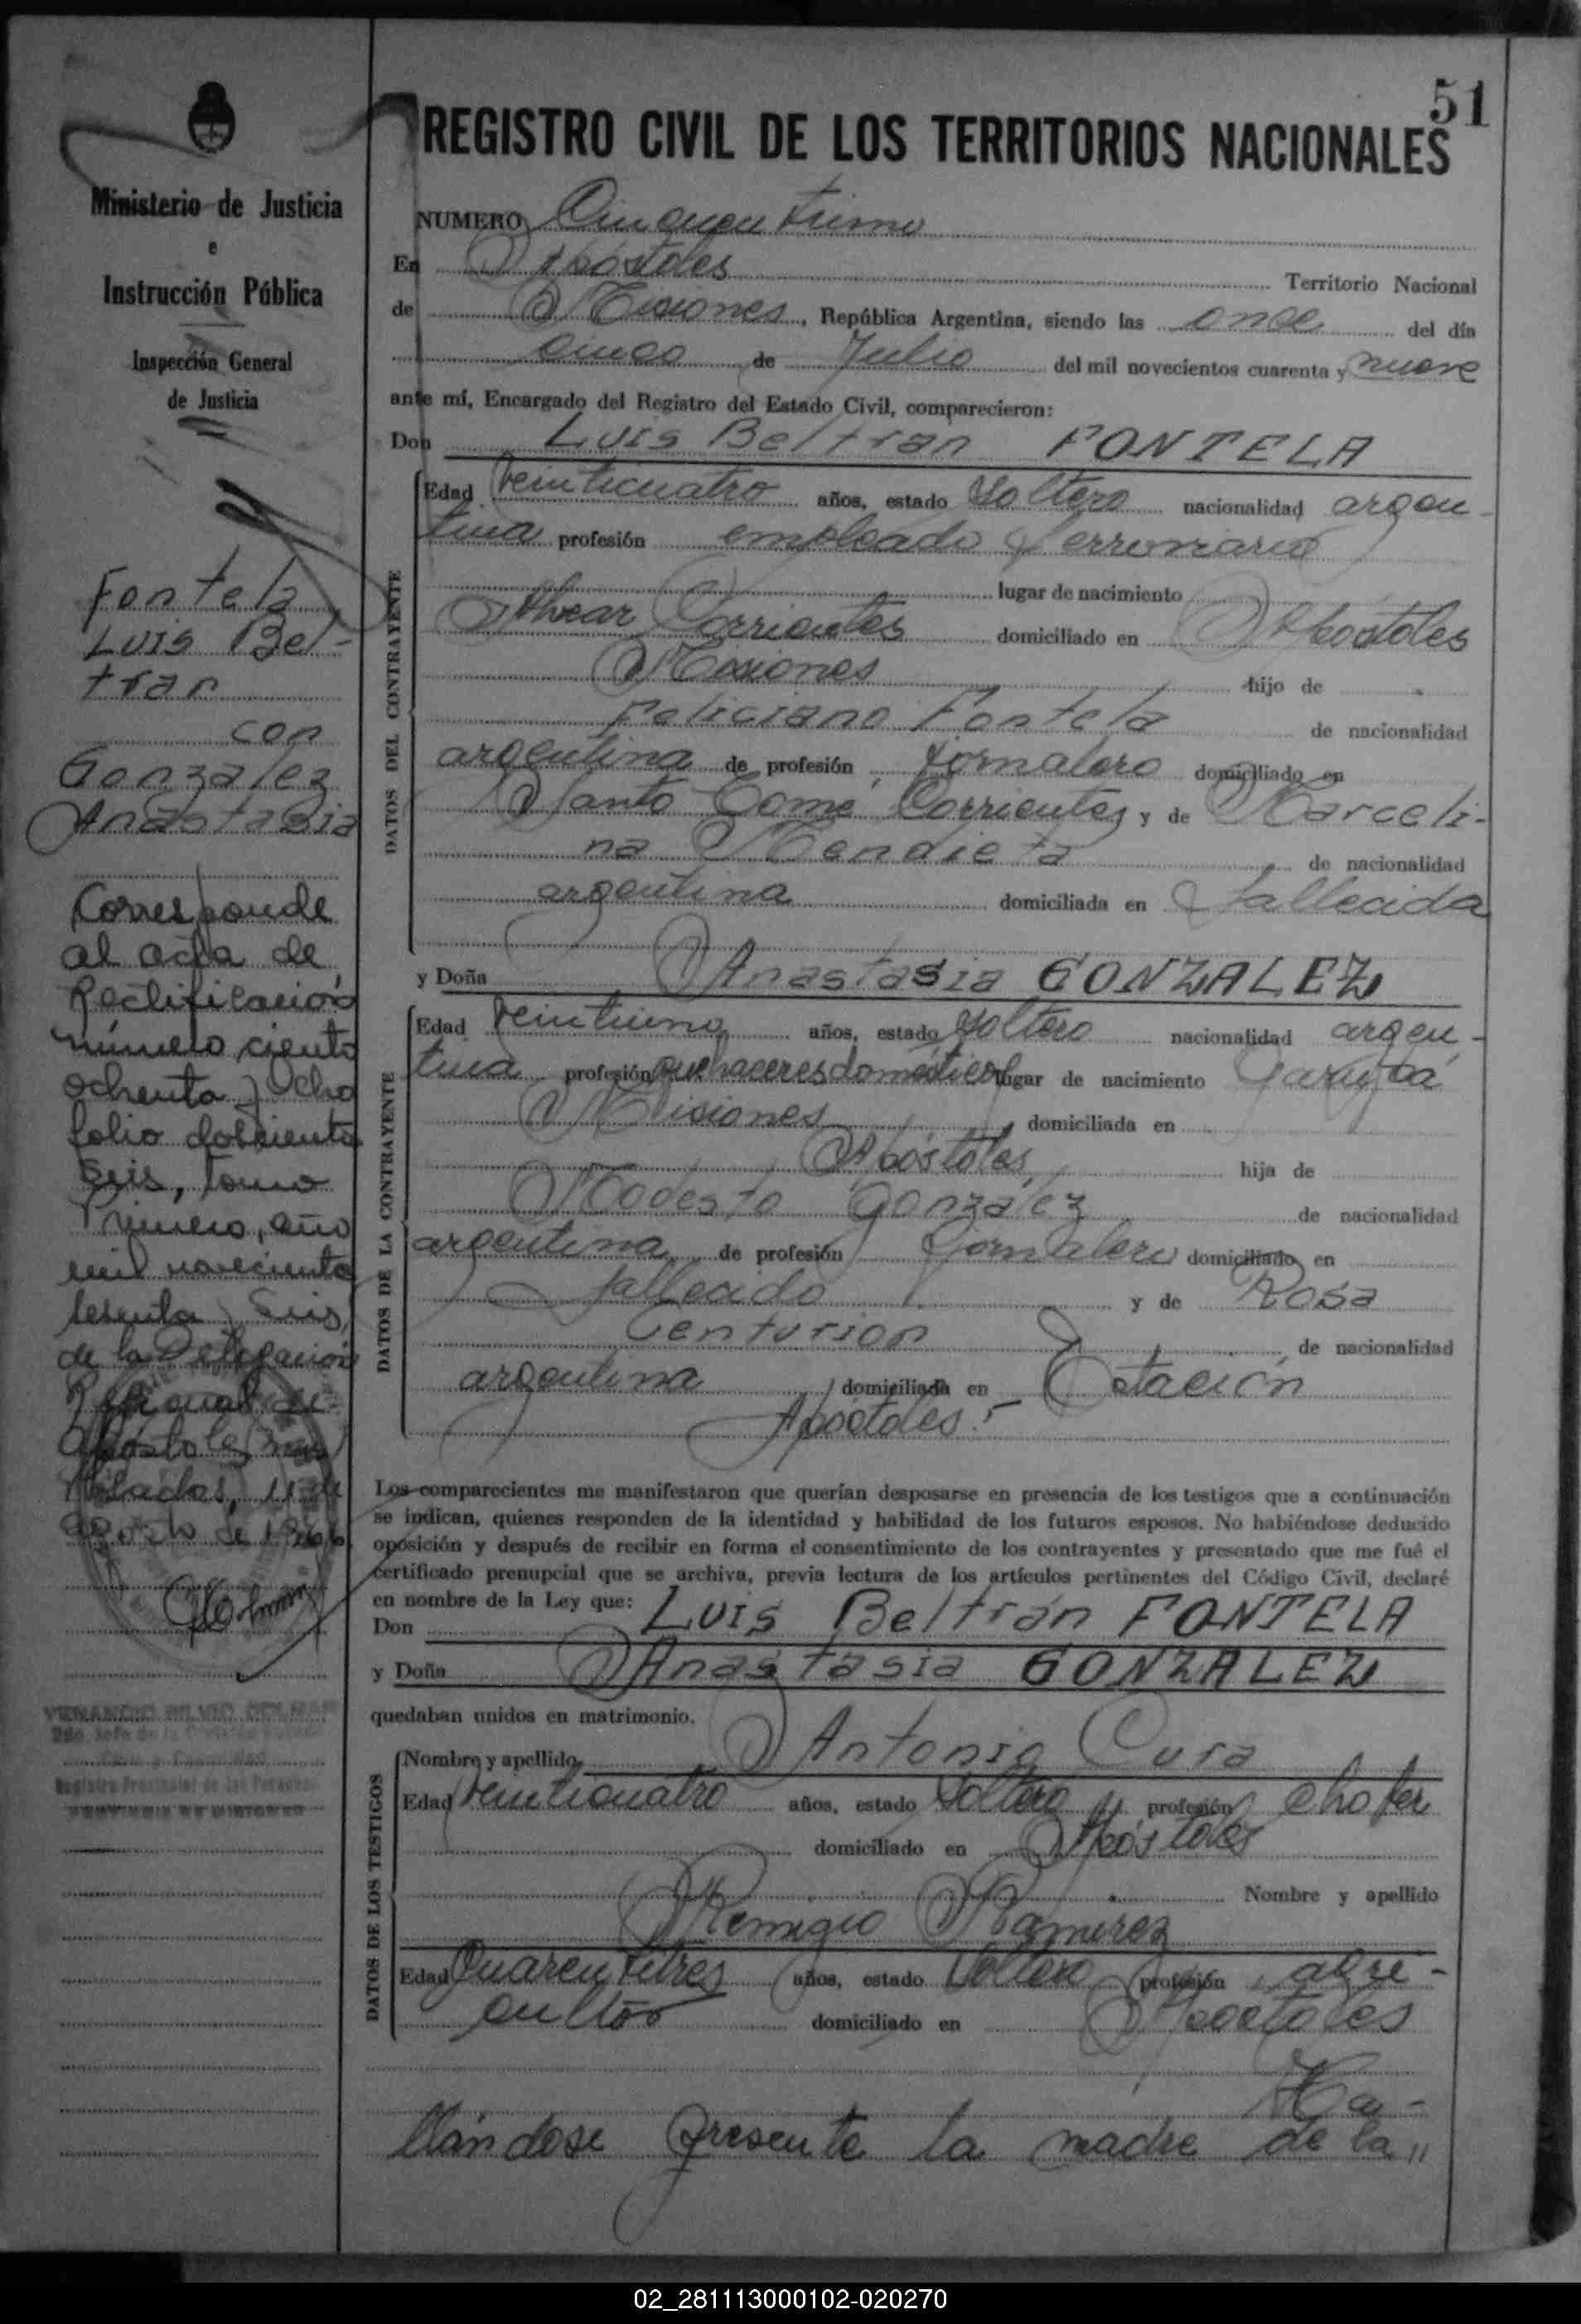 51
REGISTRO CIVIL DE LOS TERRITORIOS NACIONALES
Ministerio de Justicia
e
Instrucción Pública
Inspección General
de Justicia
Fontela
Luis Bel-
tran
con
Gonzalez
Anastasia
Corresponde
al acta de
Rectificación
número ciento
ochenta y ocho
folio doscientos
seis, tomo
Primero, año
mil novecientos
sesenta y seis,
de la Delegación
Apóstoles
11 de
agosto de 1966
NUMERO Cincuentiuno
En Apóstoles Territorio Nacional
de Misiones, República Argentina, siendo las once del día
cinco de Julio del mil novecientos cuarenta y nueve
ante mí, Encargado del Registro del Estado Civil, comparecieron:
Don Luis Beltran FONTELA
DATOS DEL CONTRAYENTE
Edad Veinticuatro años, estado Soltero nacionalidad argen-
tina profesión empleado ferroviario
lugar de nacimiento
Alvear Corrientes domiciliado en Apóstoles
Misiones hijo de
Feliciano Fontela de nacionalidad
argentina de profesión jornalero domiciliado en
Santo Tomé Corrientes y de Marceli-
na Mendieta de nacionalidad
argentina domiciliada en fallecida
y Doña Anastasia GONZALEZ
DATOS DE LA CONTRAYENTE
Edad Veintiuno años, estado Soltero nacionalidad argen-
tina profesión quehaceres domésticos lugar de nacimiento Garupá
Misiones domiciliada en
Apóstoles hija de
Modesto Gonzalez de nacionalidad
argentina de profesión Jornalero domiciliado en
fallecido y de Rosa
Centurion de nacionalidad
argentina domiciliada en Estación
Apóstoles.-
Los comparecientes me manifestaron que querían desposarse en presencia de los testigos que a continuación
se indican, quienes responden de la identidad y habilidad de los futuros esposos. No habiéndose deducido
oposición y después de recibir en forma el consentimiento de los contrayentes y presentado que me fué el
certificado prenupcial que se archiva, previa lectura de los artículos pertinentes del Código Civil, declaré
en nombre de la Ley que:
Don Luis Beltrán FONTELA
y Doña Anastasia GONZALEZ
quedaban unidos en matrimonio.
DATOS DE LOS TESTIGOS
Nombre y apellido Antonio Cura
Edad veinticuatro años, estado Soltero profesión chofer
domiciliado en Apóstoles
Nombre y apellido
Remigio Ramirez
Edad Cuarentitres años, estado Soltero profesión agri-
cultor domiciliado en Apóstoles
Ha-
llándose presente la madre de la "
02_281113000102-020270